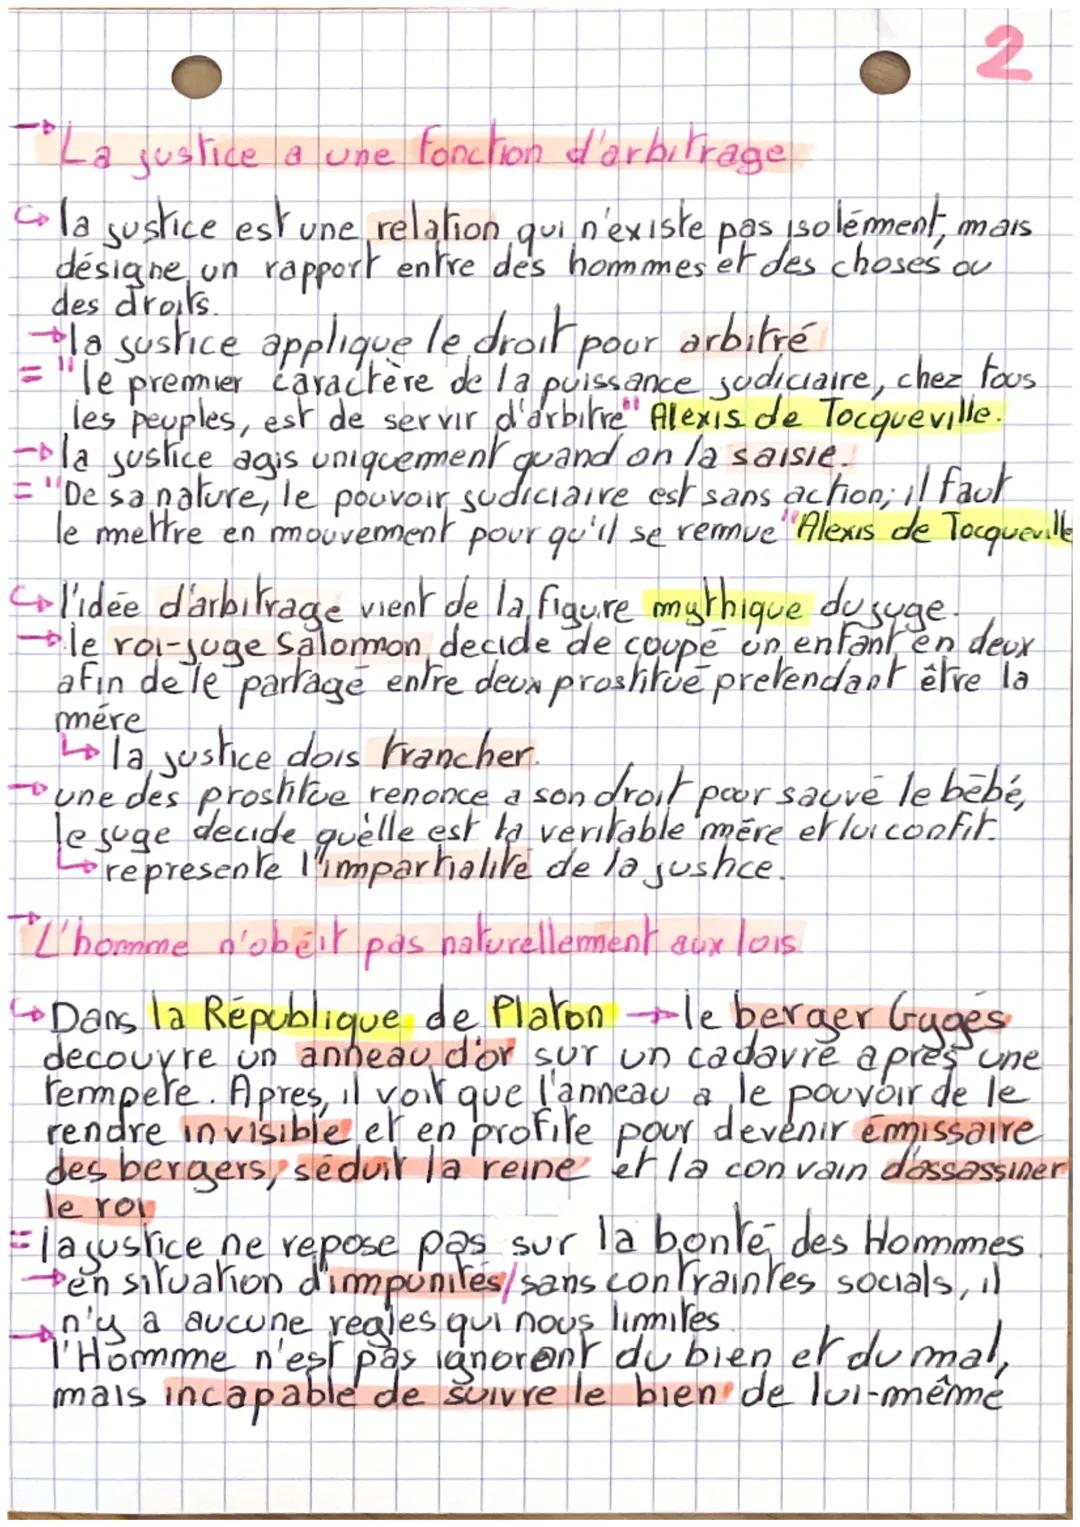 2
→ La justice a une fonction d'arbitrage
↪ la justice est une relation qui n'existe pas isolément, mais
désigne un rapport entre des hommes et des choses ou
des droits.
→ la justice applique le droit pour arbitré
= "le premier caractère de la puissance judiciaire, chez tous
les peuples, est de servir d'arbitre" Alexis de Tocqueville.
→ la justice agis uniquement quand on la saisie.
= "De sa nature, le pouvoir judiciaire est sans action; il faut
le mettre en mouvement pour qu'il se remue" Alexis de Tocqueville
↪ l'idée d'arbitrage vient de la figure mythique du juge.
→ le roi-juge Salomon decide de coupé un enfant en deux
afin de le partagé entre deux prostitué pretendant être la
mére
↳ la justice dois trancher.
→ une des prostitue renonce a son droit pour sauvé le bébé,
le juge decide quèlle est la veritable mére et lui confit.
↳ represente l'impartialité de la justice.
→ L'homme n'obéit pas naturellement aux lois
↪ Dans la République de Platon → le berger Gygés
decouvre un anneau d'or sur un cadavre apres une
tempete. Apres, il voit que l'anneau a le pouvoir de le
rendre invisible et en profite pour devenir émissaire
des bergers, séduit la reine et la convain d'assassiner
le roi
= la justice ne repose pas sur la bonté des Hommes
→ en situation d'impunités/sans contraintes socials, il
n'y a aucune regles qui nous limites
→ l'Homme n'est pas ignorant du bien et du mal,
mais incapable de suivre le bien de lui-même